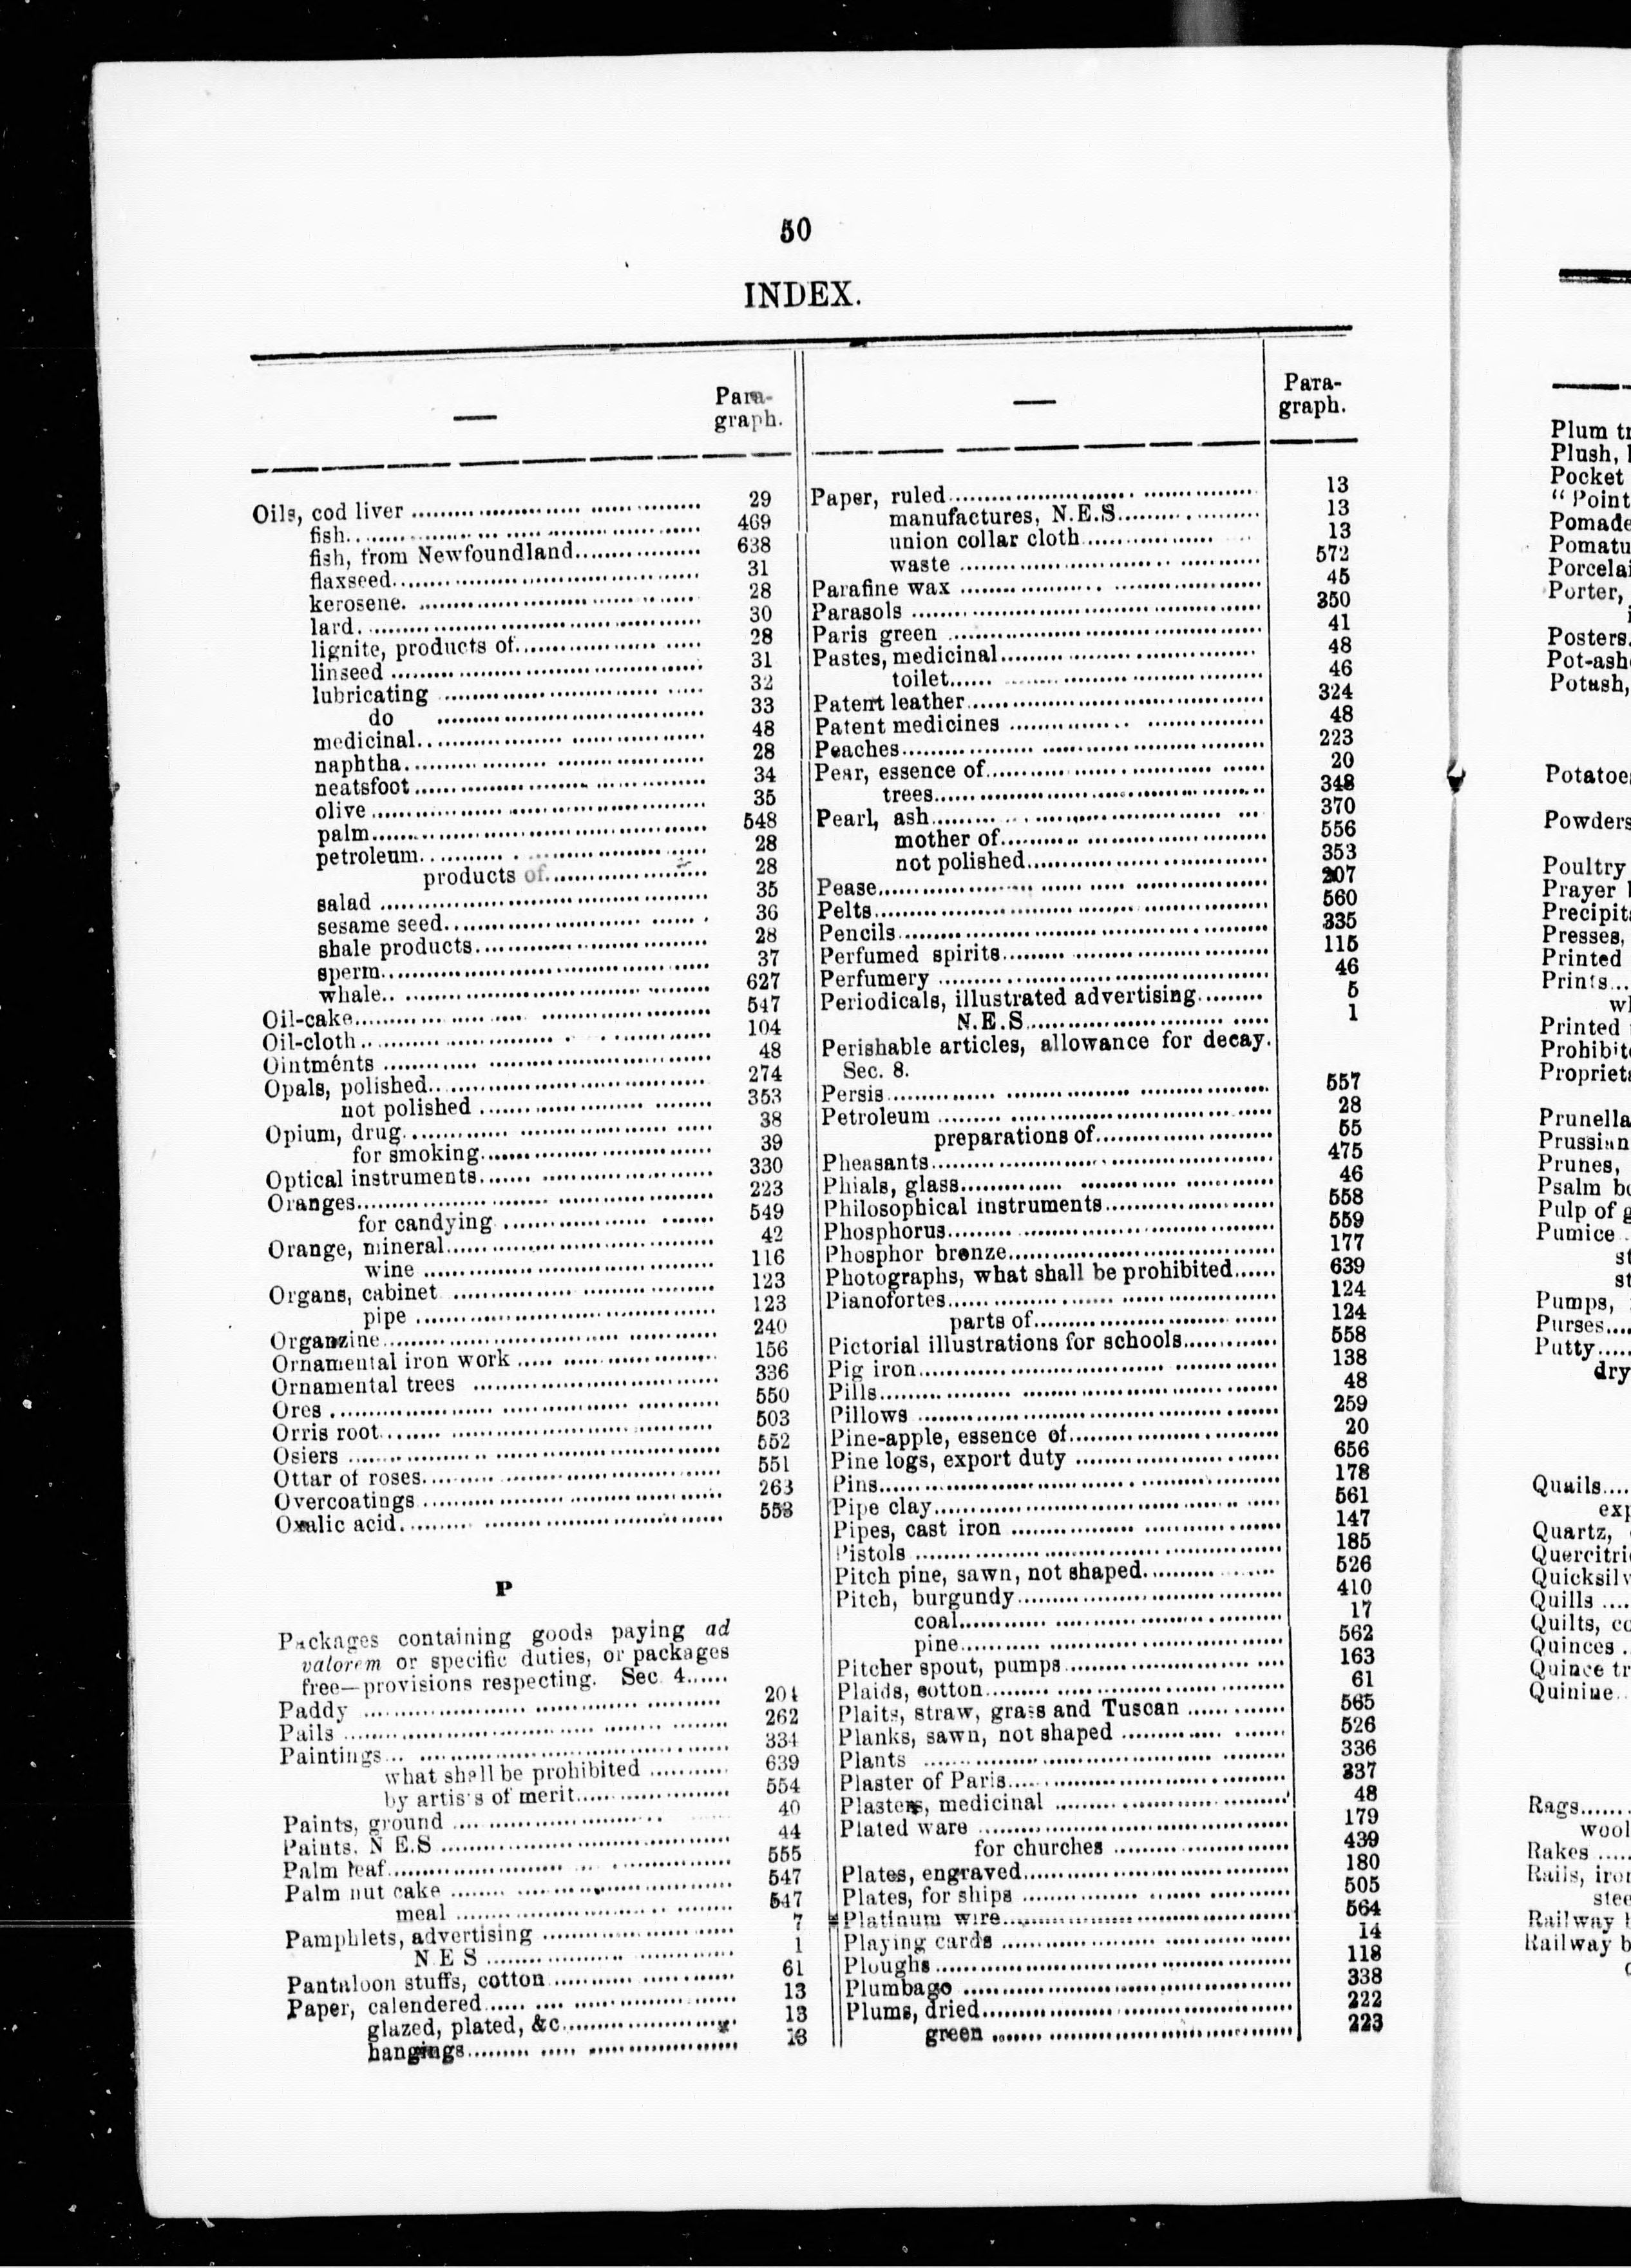 50
INDEX.
Para-
graph.
Oils, cod liver ........ 29
fish ........ 469
fish, from Newfoundland ........ 638
flaxseed ........ 31
kerosene ........ 28
lard ........ 30
lignite, products of ........ 28
linseed ........ 31
lubricating ........ 32
do ........ 33
medicinal ........ 48
naphtha ........ 28
neatsfoot ........ 34
olive ........ 35
palm ........ 548
petroleum ........ 28
products of ........ 28
salad ........ 35
sesame seed ........ 36
shale products ........ 28
sperm ........ 37
whale ........ 627
Oil-cake ........ 547
Oil-cloth ........ 104
Ointments ........ 48
Opals, polished ........ 274
not polished ........ 353
Opium, drug ........ 38
for smoking ........ 39
Optical instruments ........ 330
Oranges ........ 223
for candying ........ 549
Orange, mineral ........ 42
wine ........ 116
Organs, cabinet ........ 123
pipe ........ 123
Organzine ........ 240
Ornamental iron work ........ 156
Ornamental trees ........ 336
Ores ........ 550
Orris root ........ 503
Osiers ........ 552
Ottar of roses ........ 551
Overcoatings ........ 263
Oxalic acid ........ 553
P
Packages containing goods paying ad
valorem or specific duties, or packages
free—provisions respecting. Sec 4......
Paddy ........ 204
Pails ........ 262
Paintings ........ 334
what shall be prohibited ........ 639
by artists of merit ........ 554
Paints, ground ........ 40
Paints, N E.S ........ 44
Palm leaf ........ 555
Palm nut cake ........ 547
meal ........ 547
Pamphlets, advertising ........ 7
N.E S ........ 1
Pantaloon stuffs, cotton ........ 61
Paper, calendered ........ 13
glazed, plated, &c ........ 13
hangings ........ 13
Para-
graph.
Paper, ruled ........ 13
manufactures, N.E.S ........ 13
union collar cloth ........ 13
waste ........ 572
Parafine wax ........ 45
Parasols ........ 350
Paris green ........ 41
Pastes, medicinal ........ 48
toilet ........ 46
Patent leather ........ 324
Patent medicines ........ 48
Peaches ........ 223
Pear, essence of ........ 20
trees ........ 348
Pearl, ash ........ 370
mother of ........ 556
not polished ........ 353
Pease ........ 207
Pelts ........ 560
Pencils ........ 335
Perfumed spirits ........ 115
Perfumery ........ 46
Periodicals, illustrated advertising ........ 5
N.E.S ........ 1
Perishable articles, allowance for decay.
Sec. 8.
Persis ........ 557
Petroleum ........ 28
preparations of ........ 55
Pheasants ........ 475
Phials, glass ........ 46
Philosophical instruments ........ 558
Phosphorus ........ 559
Phosphor bronze ........ 177
Photographs, what shall be prohibited ........ 639
Pianofortes ........ 124
parts of ........ 124
Pictorial illustrations for schools ........ 558
Pig iron ........ 138
Pills ........ 48
Pillows ........ 259
Pine-apple, essence of ........ 20
Pine logs, export duty ........ 656
Pins ........ 178
Pipe clay ........ 561
Pipes, cast iron ........ 147
Pistols ........ 185
Pitch pine, sawn, not shaped ........ 526
Pitch, burgundy ........ 410
coal ........ 17
pine ........ 562
Pitcher spout, pumps ........ 163
Plaids, cotton ........ 61
Plaits, straw, grass and Tuscan ........ 565
Planks, sawn, not shaped ........ 526
Plants ........ 336
Plaster of Paris ........ 337
Plasters, medicinal ........ 48
Plated ware ........ 179
for churches ........ 439
Plates, engraved ........ 180
Plates, for ships ........ 505
Platinum wire ........ 564
Playing cards ........ 14
Ploughs ........ 118
Plumbago ........ 338
Plums, dried ........ 222
green ........ 223
Plum tr
Plush,
Pocket
"Point
Pomade
Pomatu
Porcelai
Porter,
Posters.
Pot-ash
Potash,
Potatoe
Powders
Poultry
Prayer
Precipit
Presses,
Printed
Prints...
wh
Printed
Prohibit
Propriet
Prunella
Prussian
Prunes,
Psalm bo
Pulp of g
Pumice
st
st
Pumps,
Purses....
Putty.....
dry
Quails....
exp
Quartz,
Quercitri
Quicksilv
Quills ....
Quilts, co
Quinces ..
Quince tr
Quinine
Rags......
wool
Rakes .....
Rails, iron
stee
Railway
Railway b